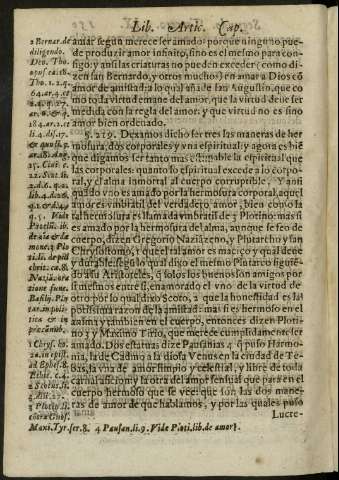 Lib. Artic. Cap.
amar segun merece ser amado: porque ninguno pue-
de produzir amor infinito, sino es el mesmo para con-
sigo: y ansi las criaturas no pueden exceder (como di-
zen san Bernardo, y otros muchos) en amar a Dios cō
amor de amistad; a lo qual añade san Augustin, que co
mo toda la virtud emane del amor, que la virtud deue ser
medida con la regla del amor, y que virtud no es sino
amor bien ordenado.
5. 219. Dexamos dicho ser tres las maneras de her
mosura, dos corporales y vna espiritual: y agora es biē
que digamos ser tanto mas estimable la espiritual que
las corporales: quanto lo espiritual excede a lo corpo-
ral, y el alma inmortal al cuerpo corruptible. Y ansi
quādo vno es amado por la hermosura corporal, aquel
amor es vmbratil del verdadero amor, bien como la
tal hermosura es llamada vmbratil de 3 Plotino: mas si
es amado por la hermosura del alma, aunque sea feo de
cuerpo, dizen Gregorio Naziāzeno, y Plutarcho y san
Chrysostomo, que el tal amor es maciço y qual deue
y durable, segun lo qual dixo el mesmo Plutarco siguiē-
do a su Aristoteles, q̄ solos los buenos son amigos por
si mesmos entre si, enamorado el vno de la virtud de
otro por lo qual dixo Scoto, a que la honestidad es la
potissima razon de la amistad: mas si es hermoso en el
anima y tambien en el cuerpo, entonces dizen Plotino
y Maximo Tirio, que merece cumplidamente ser
amado. Dos estatuas dize Pausanias 4 q̄ puso Harmo-
nia, la de Cadmo a la diosa Venus en la ciudad de Te-
bas, la vna de amor simple y celestial, y libre de toda
carnal aficion: y la otra del amor sensual que para en el
cuerpo hermoso que se vee: que son las dos mane-
ras de amor de que hablamos, y por las quales puso
Lucre-
2 Bernar. de
diligendo.
Deo. Tho.
opus. ca.18.
Tho.
64. ar.4. et
184. ar.2. et
li.4. dis.17.
ar.18. Aug.
15. Ciui. c.
22.
q. 5.
de aīa & da
mone. 3 Plo
ti. li. de pul
chrit. ca.8.
tione fune.
Basilij. Plu
tar. in poli-
tic. & in
1 Chrys. ho.
20. in epist.
ad Ephes. 8.
Ethic. c.4.
2 Scotus li.
3 Plotin. li.
Maxi. Tyr. ser. 8. 4 Pausan. li. 9. Vide Ploti. lib. de amore.